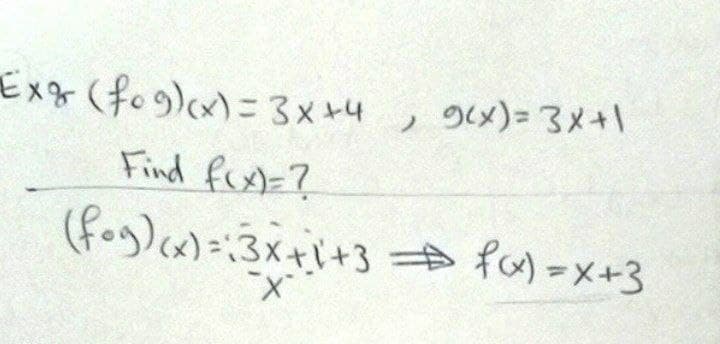 Ex: (fog)(x) = 3x+4 , g(x) = 3x+1
Find f(x)=?
(fog)(x) = 3x+1+3 ⇒ f(x) = x+3
x